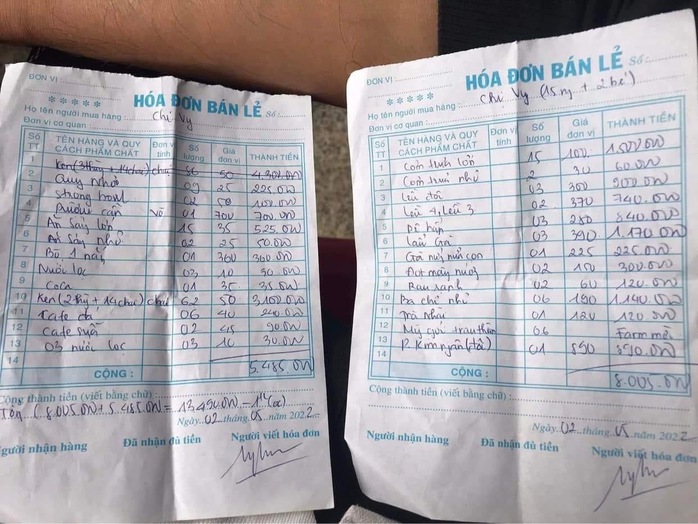 ĐƠN VỊ :
HÓA ĐƠN BÁN LẺ Số :
Họ tên người mua hàng : Chi Vy
Đơn vị cơ quan :
Số TT TÊN HÀNG VÀ QUY CÁCH PHẨM CHẤT Đơn vị tính Số lượng Giá đơn vị THÀNH TIỀN
1 50 4.300.000
2 Quy nhỏ 09 25 225.000
3 Strong bowl 02 50 100.000
4 Rượu cần Vò 01 700 700.000
5 Ăn sáng lớn 15 35 525.000
6 Ăn sáng nhỏ 02 25 50.000
7 Bò 1 nắng 01 300 300.000
8 Nước lọc 03 10 30.000
9 Coca 01 35 35.000
10 Ken (2 thg + 14 chai) chai 62 50 3.100.000
11 Cafe đá 06 40 240.000
12 Cafe sữa 02 45 90.000
13 03 nước lọc 03 10 30.000
14
CỘNG : 5.485.000
Cộng thành tiền (viết bằng chữ) :
(8.005.000 + 5.485.000 = 13.490.000
Ngày 02 tháng 05 năm 2022
Người nhận hàng Đã nhận đủ tiền Người viết hóa đơn
ĐƠN VỊ :
HÓA ĐƠN BÁN LẺ Số :
Họ tên người mua hàng : Chi Vy (15 ng + 2 bé)
Đơn vị cơ quan :
Số TT TÊN HÀNG VÀ QUY CÁCH PHẨM CHẤT Đơn vị tính Số lượng Giá đơn vị THÀNH TIỀN
1 lớn 15 100 1.500.000
2 nhỏ 2 30 60.000
3 Lều đôi 03 300 900.000
4 Lều 4, Lều 3 02 370 740.000
5 Dê hấp 03 280 840.000
6 Lẩu Gà 03 390 1.170.000
7 Gà nguyên con 01 225 225.000
8 Đọt mây nướng 02 150 300.000
9 Rau xanh 02 60 120.000
10 Ba chỉ nhỏ 06 190 1.140.000
11 01 120 120.000
12 Mỳ gói 06 Farm mời
13 P. Kim ngân 01 890 890.000
14
CỘNG : 8.005.000
Cộng thành tiền (viết bằng chữ) :
Ngày 02 tháng 05 năm 2022
Người nhận hàng Đã nhận đủ tiền Người viết hóa đơn